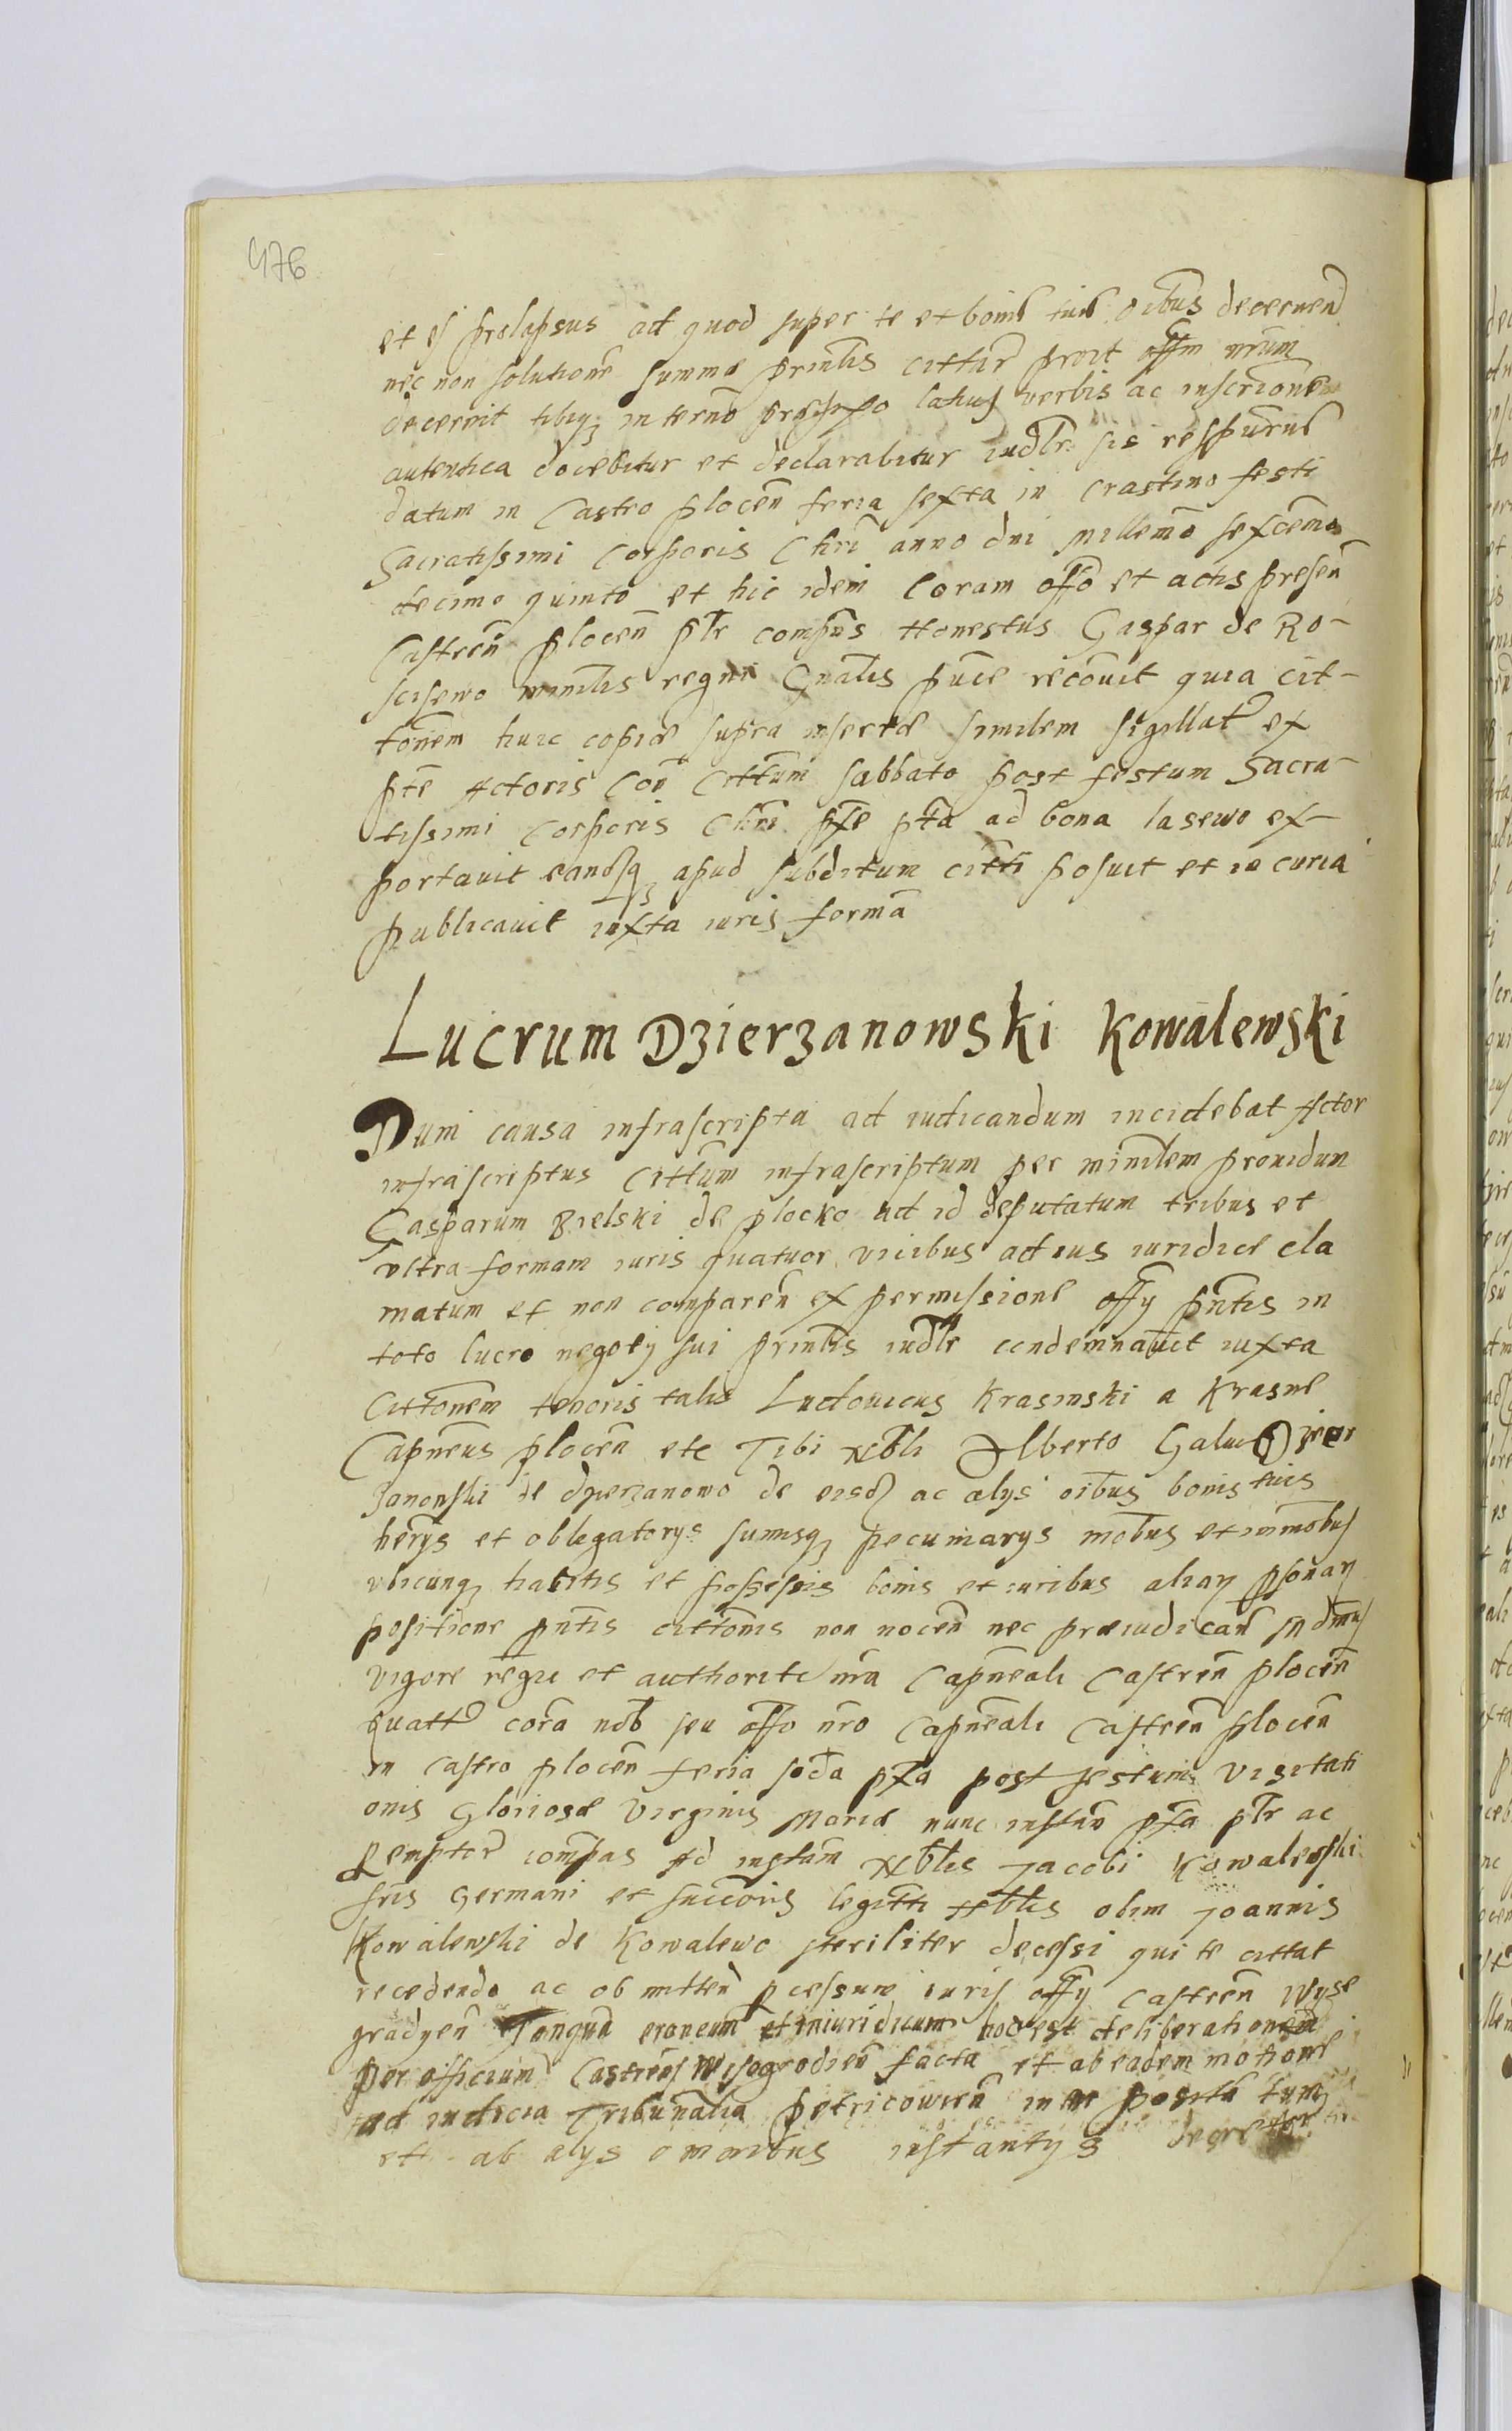 476
et es prolapsus ad quod super te et bonis tuis oibus decernen
nec non solutione summæ prinlis cittar̃ prout offm nrum
decernit tibiq in termo præfixo latius verbis ac inscrione
autentica docebitur et declarabitur iudlr sis respurus
datum in Castro plocen feria sexta in crastino festi
Sacratissimi Corporis Chri anno dni millemo sexcemo
decimo quinto et hic idem Coram offo et actis presen
Castren plocen plr compns Honestus Gaspar de Ro-
scisewo minilis regni Gnalis puce recovit quia cit-
tonem huic copiæ supra insertæ similem sigillat ex
pte Actoris Con Cittum sabbato post festum Sacra-
tissimi Corporis Chri pxe pta ad bona lasewo ex-
portavit eandq apud subditum citti posuit et in curia
publicavit iuxta iuris forma
Lucrum Dzierzanowski Kowalewski
Dum causa infrascripta ad iudicandum incidebat Actor
infrascriptus Cittum infrascriptum per minilem providum
Gasparum Bielski de plocko ad id deputatum tribus et
ultra formam iuris quatuor vicibus ad ius iuridice cla
matum et non comparen ex permissione offy pntis in
toto lucro negoty sui prinlis iudlr condemnavit iuxta
Cittonem tenoris talis Ludovicus Krasinski a Krasne
Capneus plocen etc Tibi Nbli Alberto Dzier
zanowski de dzierzanowo de eisd ac alys oibus bonis tuis
herys et obligatorys sumisq pecuniarys mobus et immobus
ubicunq habitis et possessis bonis et iuribus aliar psonar
positione pntis cittonis non nocen nec præiudican mdmus
vigore regie et authorite nra Capneali Castren plocen
quatt cora nob seu offo nro Capneali Castren plocen
in castro plocen feria scda pxa post festum Visitati
onis Gloriosæ Virginis Mariæ nunc instan pxa plr ac
pempter compas Ad instam Nblis Jacobi Kowalewski
fris Germani et succoris legitti Nblis olim Joannis
Kowalewski de Kowalewo steriliter decessi qui te cittat
recedendo ac ob mitten pcessum iuris offy Castren Wyse
gradyen Tanqua eroneum et iniuridicum hoc est deliberationem
per officium Castrens Wisogrodien facta et ab eadem motione
ad iudicia Tribunalia petricowien posita tum
et ab alys omnibus instantys